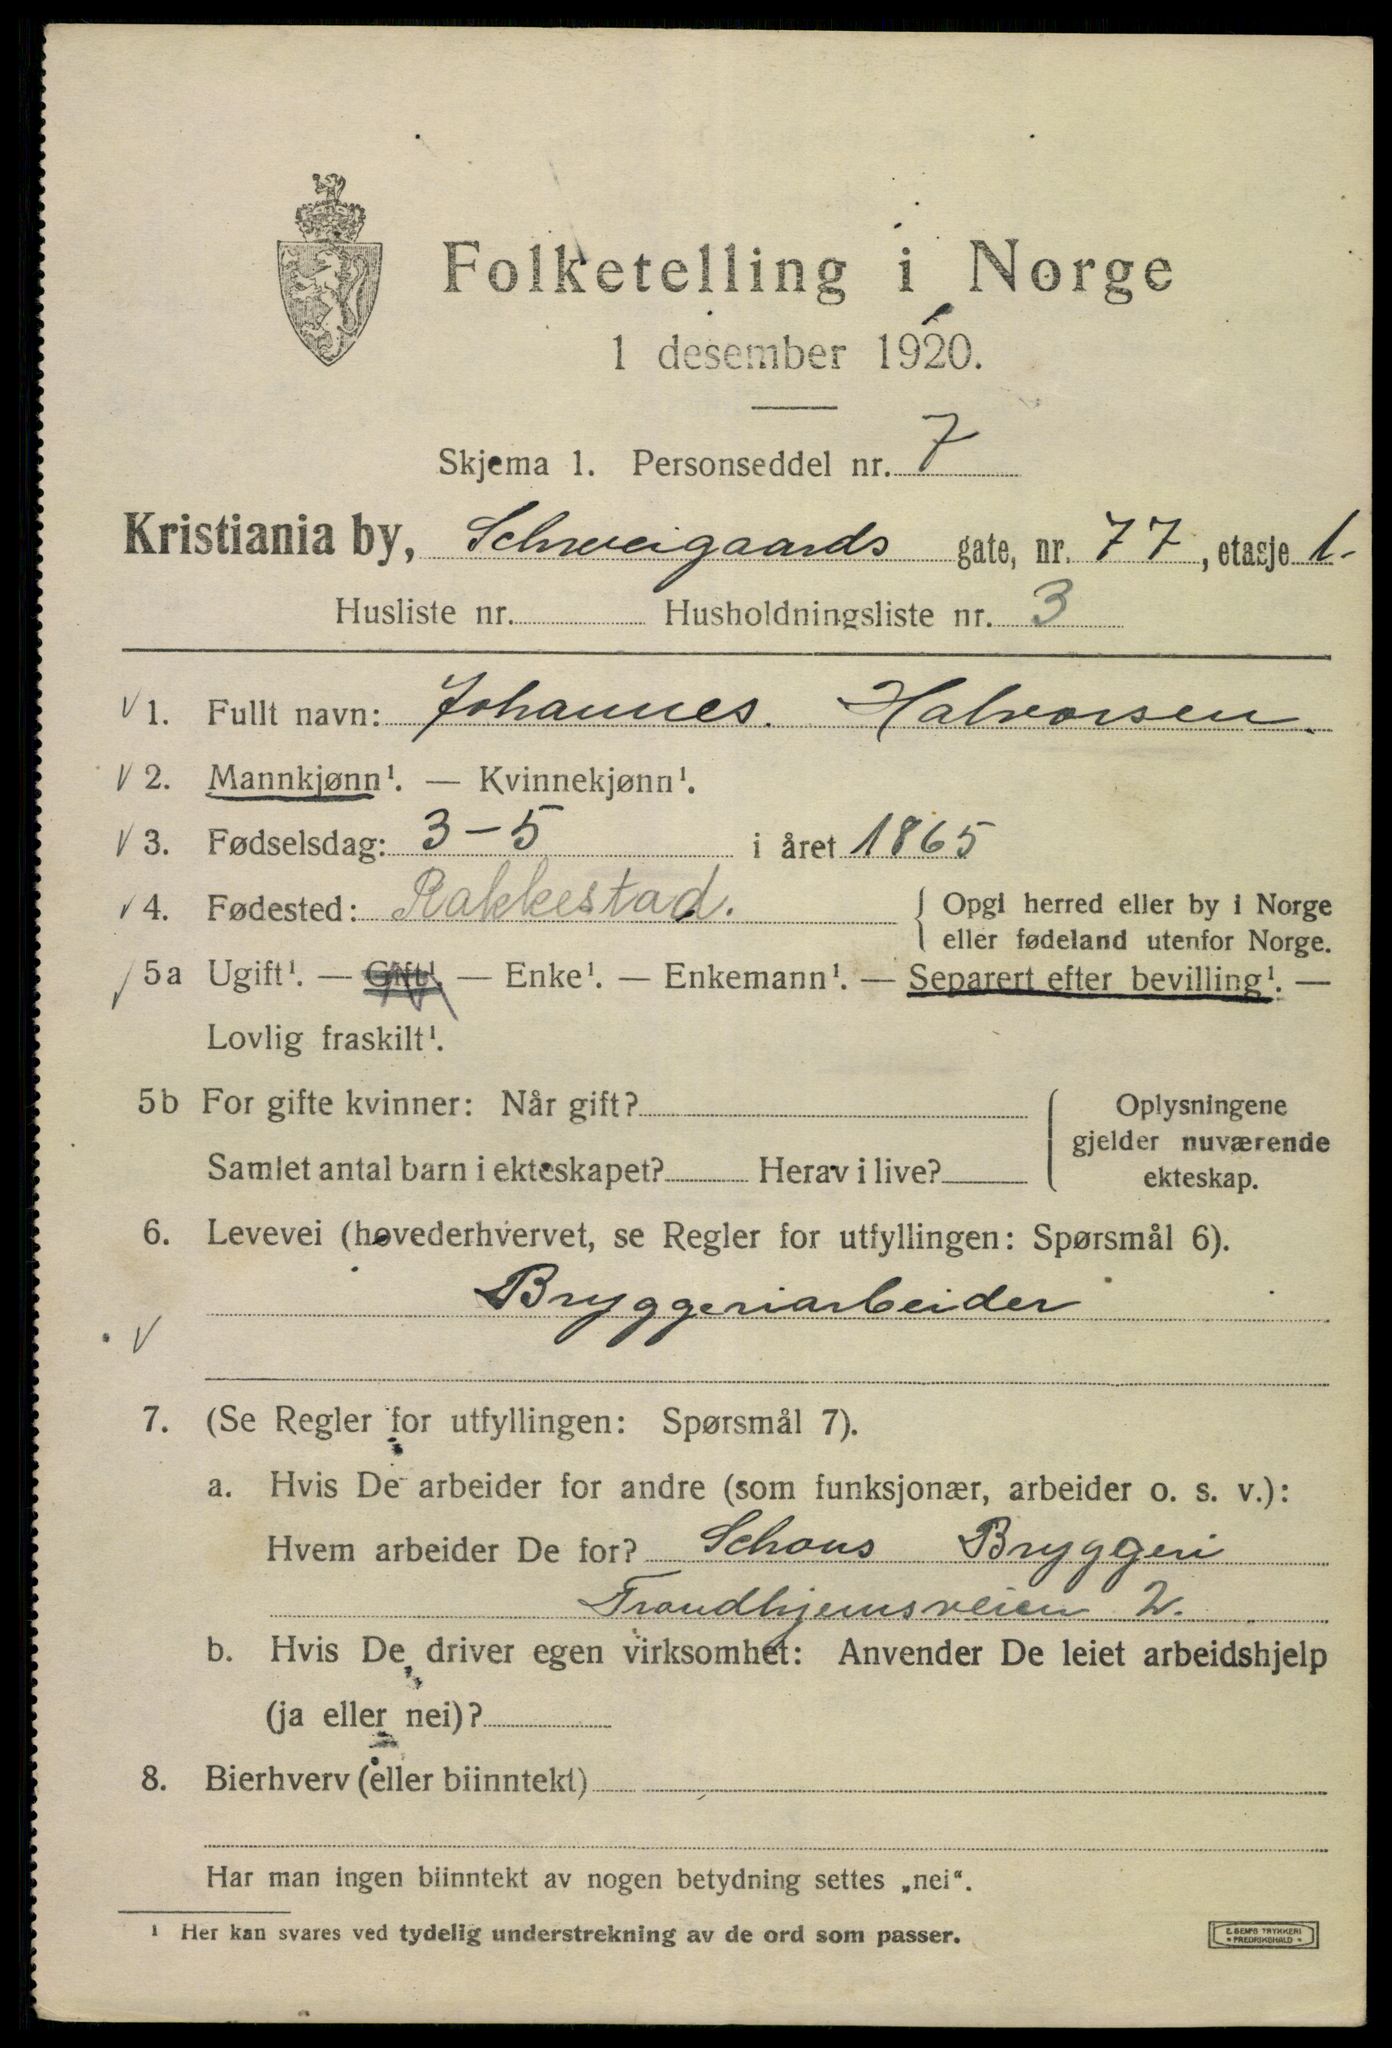 Folketelling i Norge
1 desember 1920.
Skjema 1. Personseddel nr. 7
Kristiania by, Schweigaards gate, nr. 77, etasje 1.
Husliste nr. Husholdningsliste nr. 3
1. Fullt navn: Johannes. Halvorsen
2. Mannkjønn¹. — Kvinnekjønn¹.
3. Fødselsdag: 3-5 i året 1865
4. Fødested: Rakkestad. { Opgi herred eller by i Norge
eller fødeland utenfor Norge.
5a Ugift¹. — Gift¹. — Enke¹. — Enkemann¹. — Separert efter bevilling¹. —
Lovlig fraskilt¹.
5b For gifte kvinner: Når gift? Oplysningene
gjelder nuværende
Samlet antal barn i ekteskapet? Herav i live? ekteskap.
6. Levevei (hovederhvervet, se Regler for utfyllingen: Spørsmål 6).
Bryggeriarbeider
7. (Se Regler for utfyllingen: Spørsmål 7).
a. Hvis De arbeider for andre (som funksjonær, arbeider o. s. v.):
Hvem arbeider De for? Schous Bryggeri
Trondhjemsveien 2.
b. Hvis De driver egen virksomhet: Anvender De leiet arbeidshjelp
(ja eller nei)?
8. Bierhverv (eller biinntekt)
Har man ingen biinntekt av nogen betydning settes „nei“.
¹ Her kan svares ved tydelig understrekning av de ord som passer.
E. SEM'S TRYKKERI
* FREDRIKSHALD *